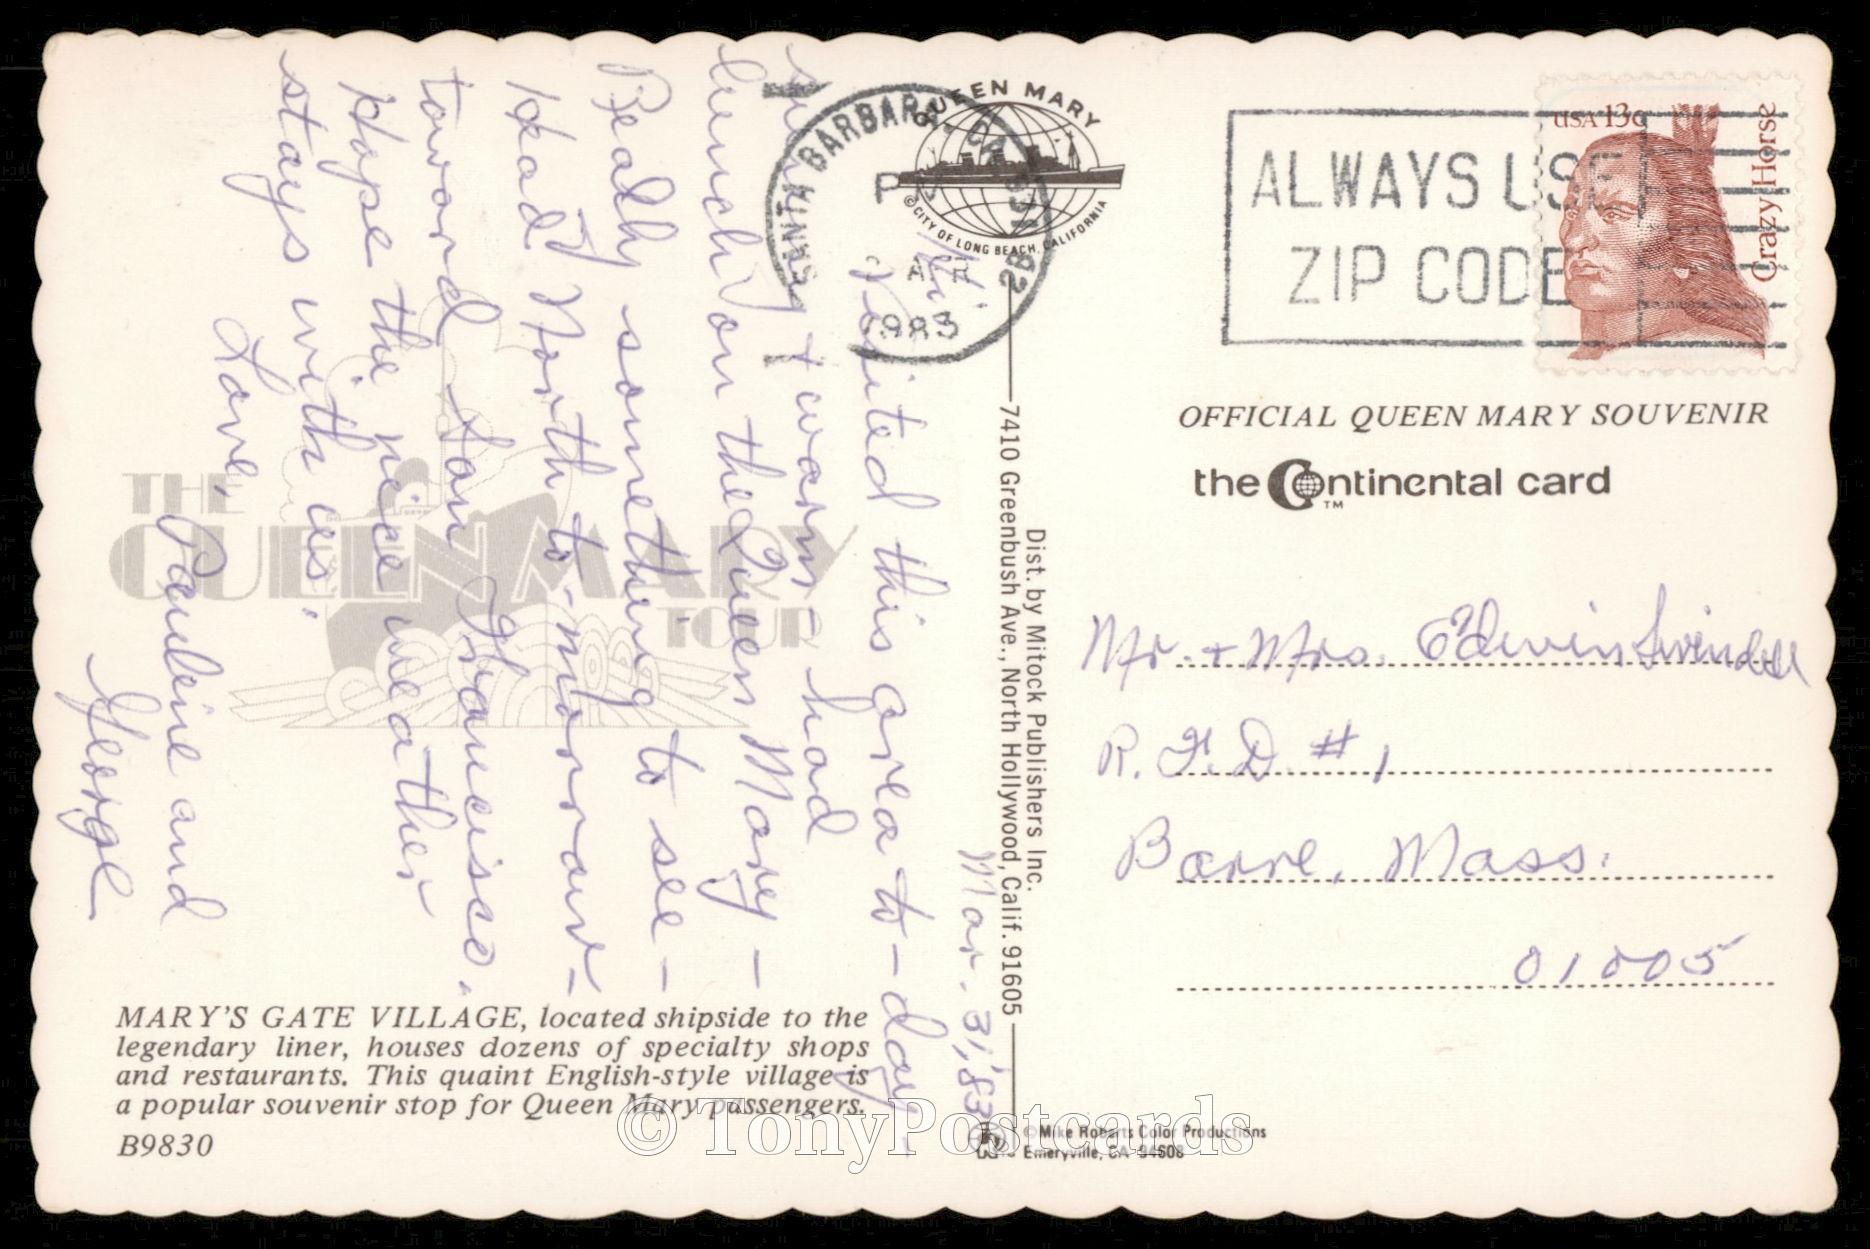 Mar. 31, '83
Hi.
Visited this area to-day -
sunny + warm - had
lunch on the Queen Mary -
Really something to see -
Head North to-morrow -
toward San Francisco.
Hope the nice weather
stays with us.
Love,
Pauline and
George
THE
QUEEN MARY
TOUR
MARY'S GATE VILLAGE, located shipside to the
legendary liner, houses dozens of specialty shops
and restaurants. This quaint English-style village is
a popular souvenir stop for Queen Mary passengers.
B9830
QUEEN MARY
© CITY OF LONG BEACH, CALIFORNIA
SANTA BARBARA, CA
APR
1983
ALWAYS USE
ZIP CODE
USA 13c
Crazy Horse
OFFICIAL QUEEN MARY SOUVENIR
the Continental card
TM
Dist. by Mitock Publishers Inc.
7410 Greenbush Ave., North Hollywood, Calif. 91605
Mr. + Mrs. Edwin Swindell
R.F.D. #1
Barre, Mass.
01005
© Mike Roberts Color Productions
Emeryville, CA 94608
© TonyPostcards